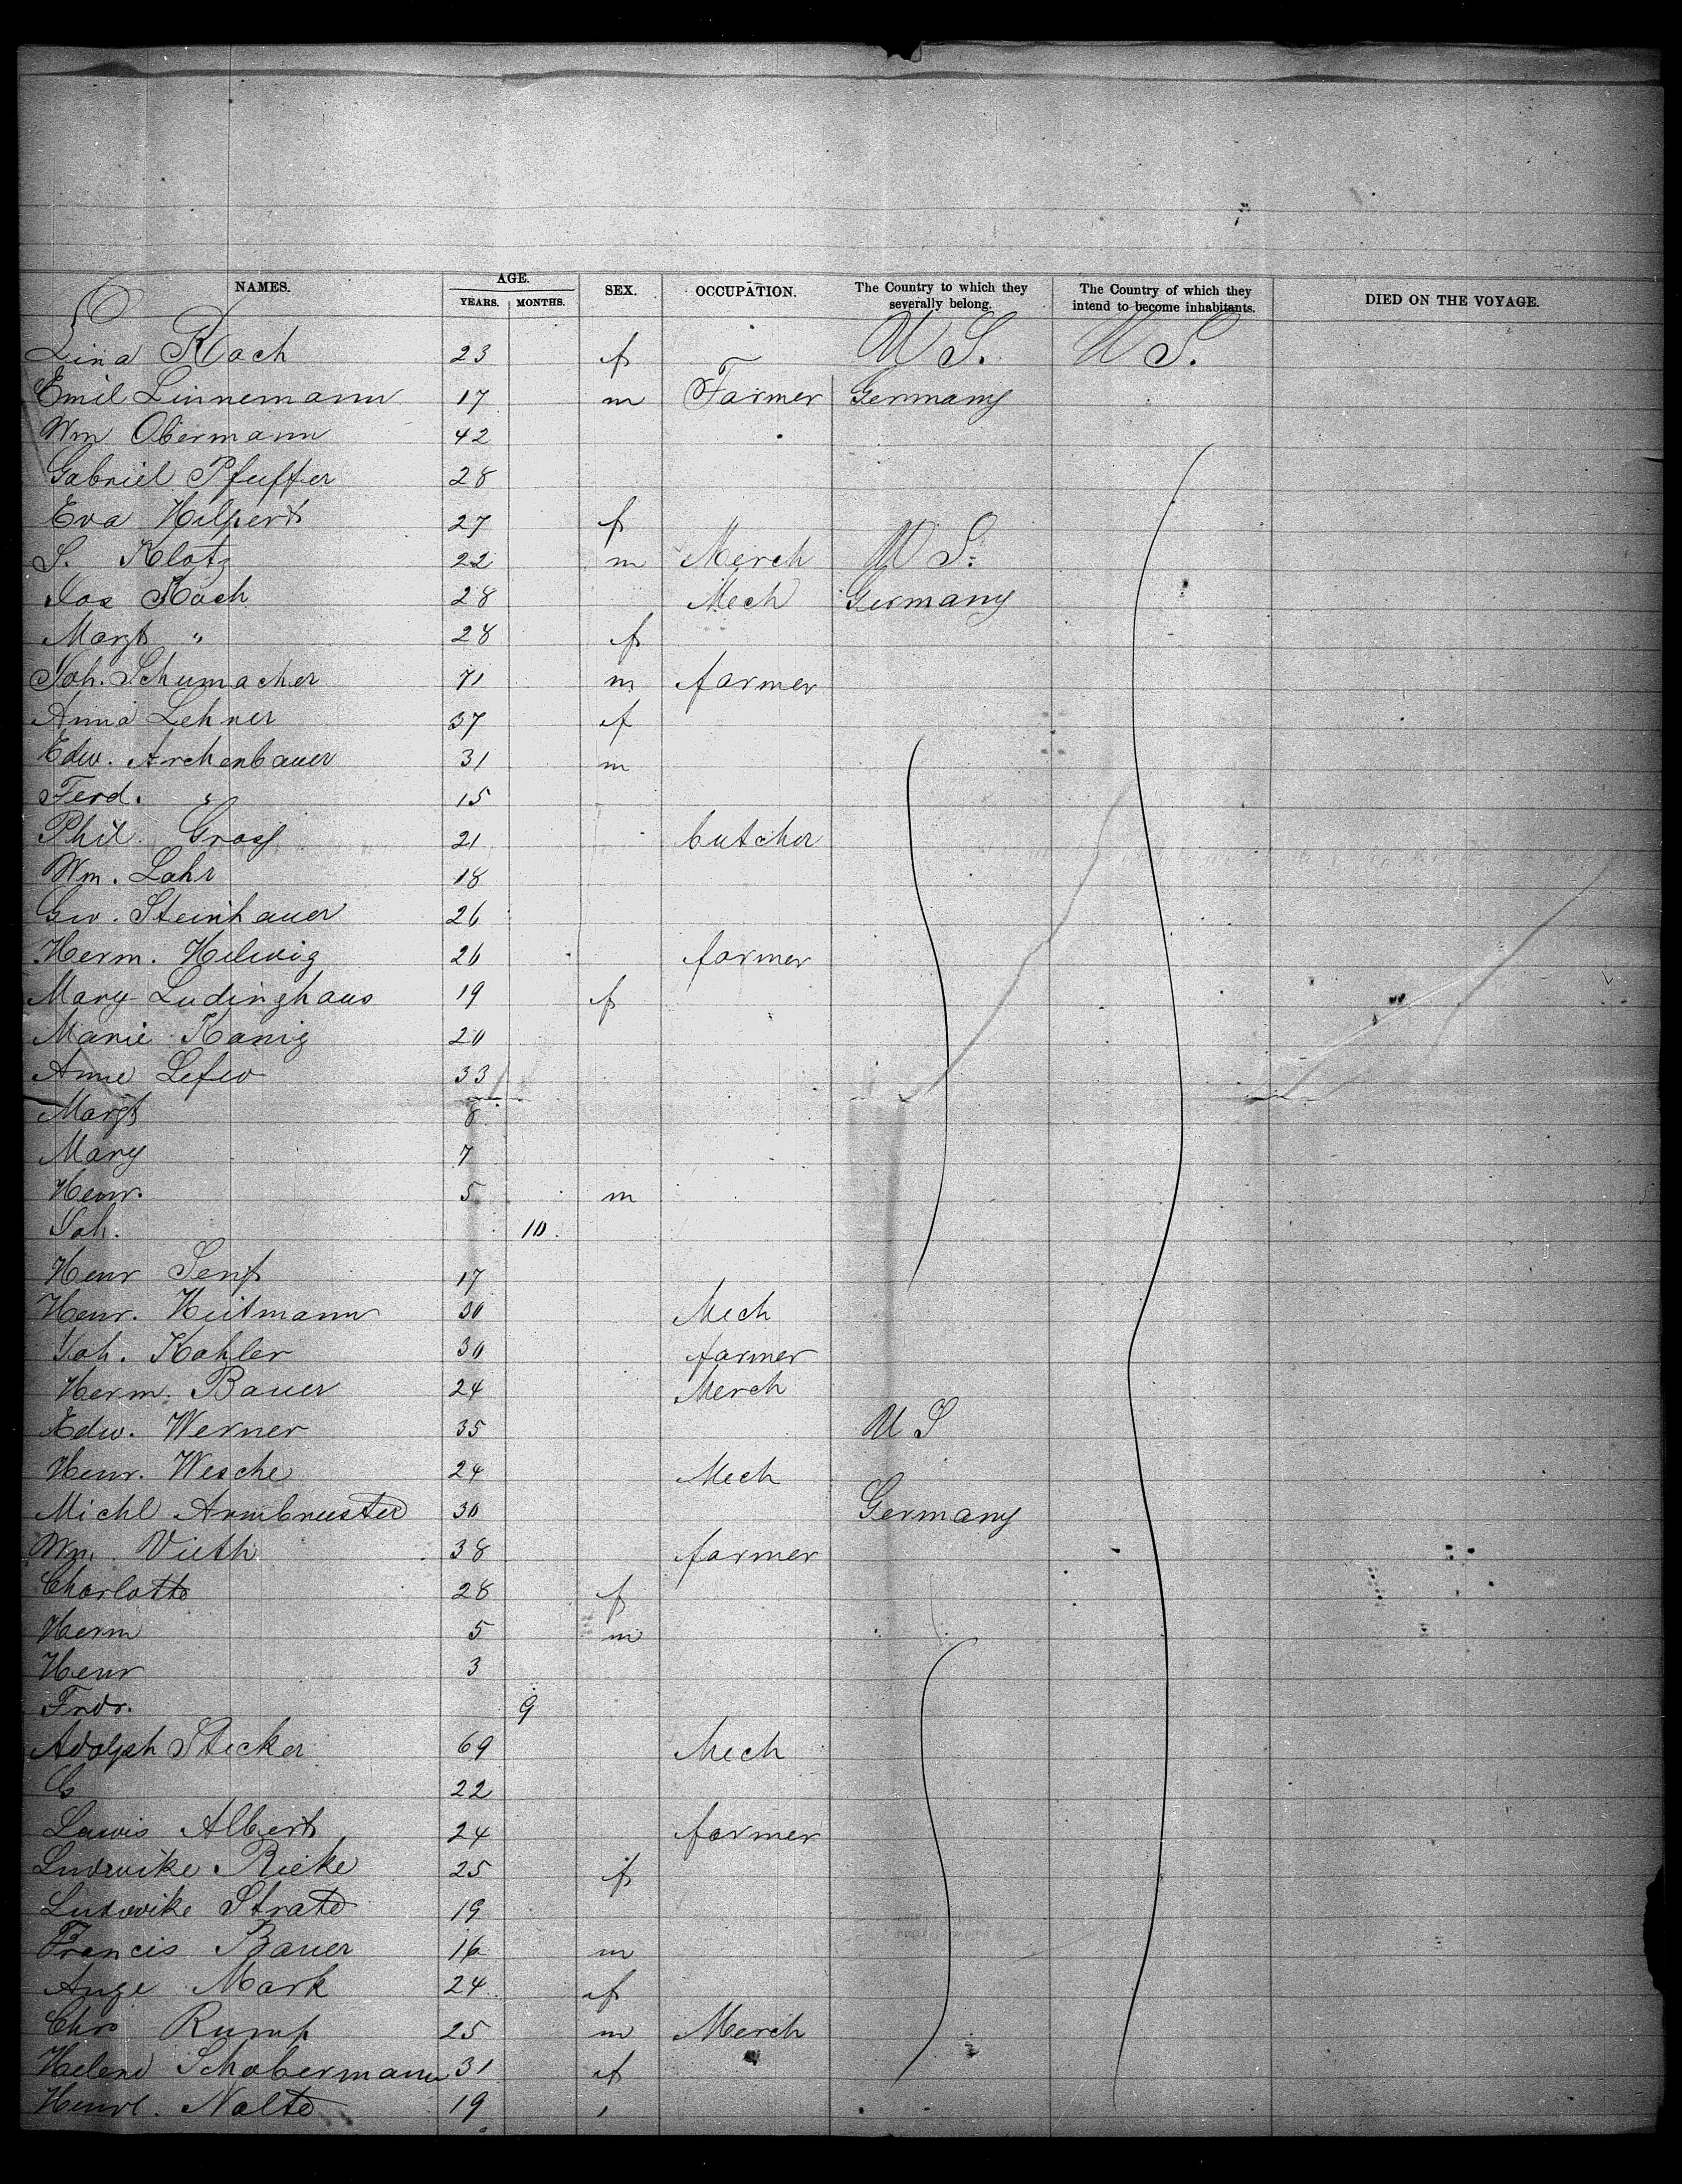 NAMES. AGE. YEARS. MONTHS. SEX. OCCUPATION. The Country to which they severally belong. The Country of which they intend to become inhabitants. DIED ON THE VOYAGE.
Lina Koch 23 f U S. U S.
Emil Linnemann 17 m Farmer Germany
Wm Obermann 42
Gabriel Pfeiffer 28
Eva Hilpert 27 f
S. Klotz 22 m Merch U S.
Jos Koch 28 Mech Germany
Margt " 28 f
Joh. Schumacher 71 m farmer
Anna Lehner 37 f
Edw. Archenbauer 31 m
Ferd. " 15
Phil. Gross 21 butcher
Wm. Lahr 18
Geo. Steinhauer 26
Herm. Helwig 26 farmer
Mary Ludinghaus 19 f
Marie Konig 20
Anne 33
Margt 8
Mary 7
Henr. 5 m
Joh. 10
Henr Senf 17
Henr. Heitmann 30 Mech
Joh. Kohler 30 farmer
Herm. Bauer 24 Merch
Edw. Werner 35 U S
Henr. Wesche 24 Mech
Michl Armbruster 30 Germany
Wm. Vieth 38 farmer
Charlotte 28 f
Herm 5 m
Henr 3
Frdr. 9
Adolph Stecker 69 Mech
C 22
Lewis Albert 24 farmer
Ludwike Rieke 25 f
Ludwike Strate 19
Francis Bauer 16 m
Auge Mark 24 f
Chr Rump 25 m Merch
Helene Schobermann 31 f
Henrt. Nolte 19 "